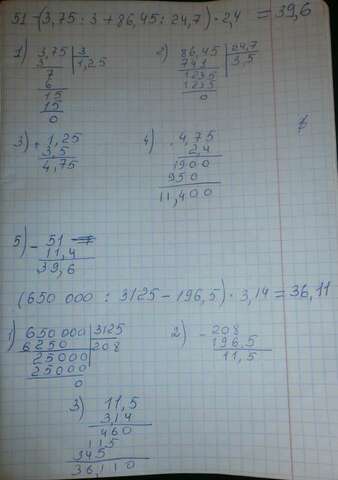 51 - (3,75 : 3 + 86,45 : 24,7) · 2,4 = 39,6
1) 3,75 | 3
3 | 1,25
7
6
15
15
0
2) 86,45 | 24,7
741 | 3,5
1235
1235
0
3) + 1,25
3,5
4,75
4) · 4,75
2,4
1900
950
11,400
5) - 51
11,4
39,6
(650 000 : 3125 - 196,5) · 3,14 = 36,11
1) 650000 | 3125
6250 | 208
25000
25000
0
2) - 208
196,5
11,5
3) 11,5
3,14
460
115
345
36,110